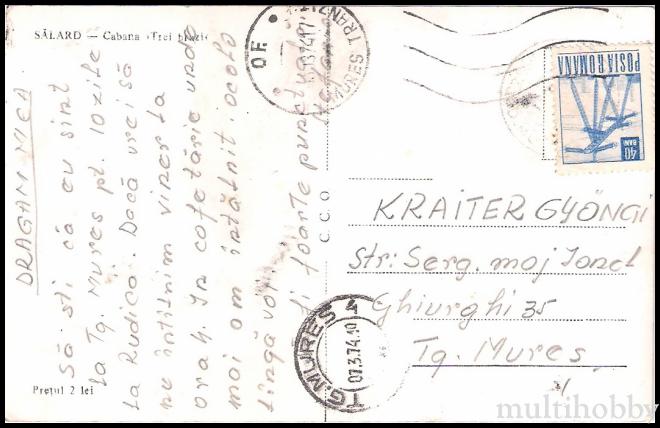 SĂLARD — Cabana «Trei brazi»
DRAGAM MEA
Să sti că eu sint
la Tg. Mures pt. 10 zile
la Rudica. Dacă vrei să
ne intîlnim vineri la
ora 4. In cofetărie unde
mai om intîlnit. acolo
lingă voi.
fi foarte punctu
Prețul 2 lei
C.C.O.
POSTA ROMANA
40
BANI
KRAITER GYÖNGI
str: Serg. moj Ionel
Ghiurghi 35
Tg. Mures
TG. MURES 4
07.3.74.10
OF.
multihobby